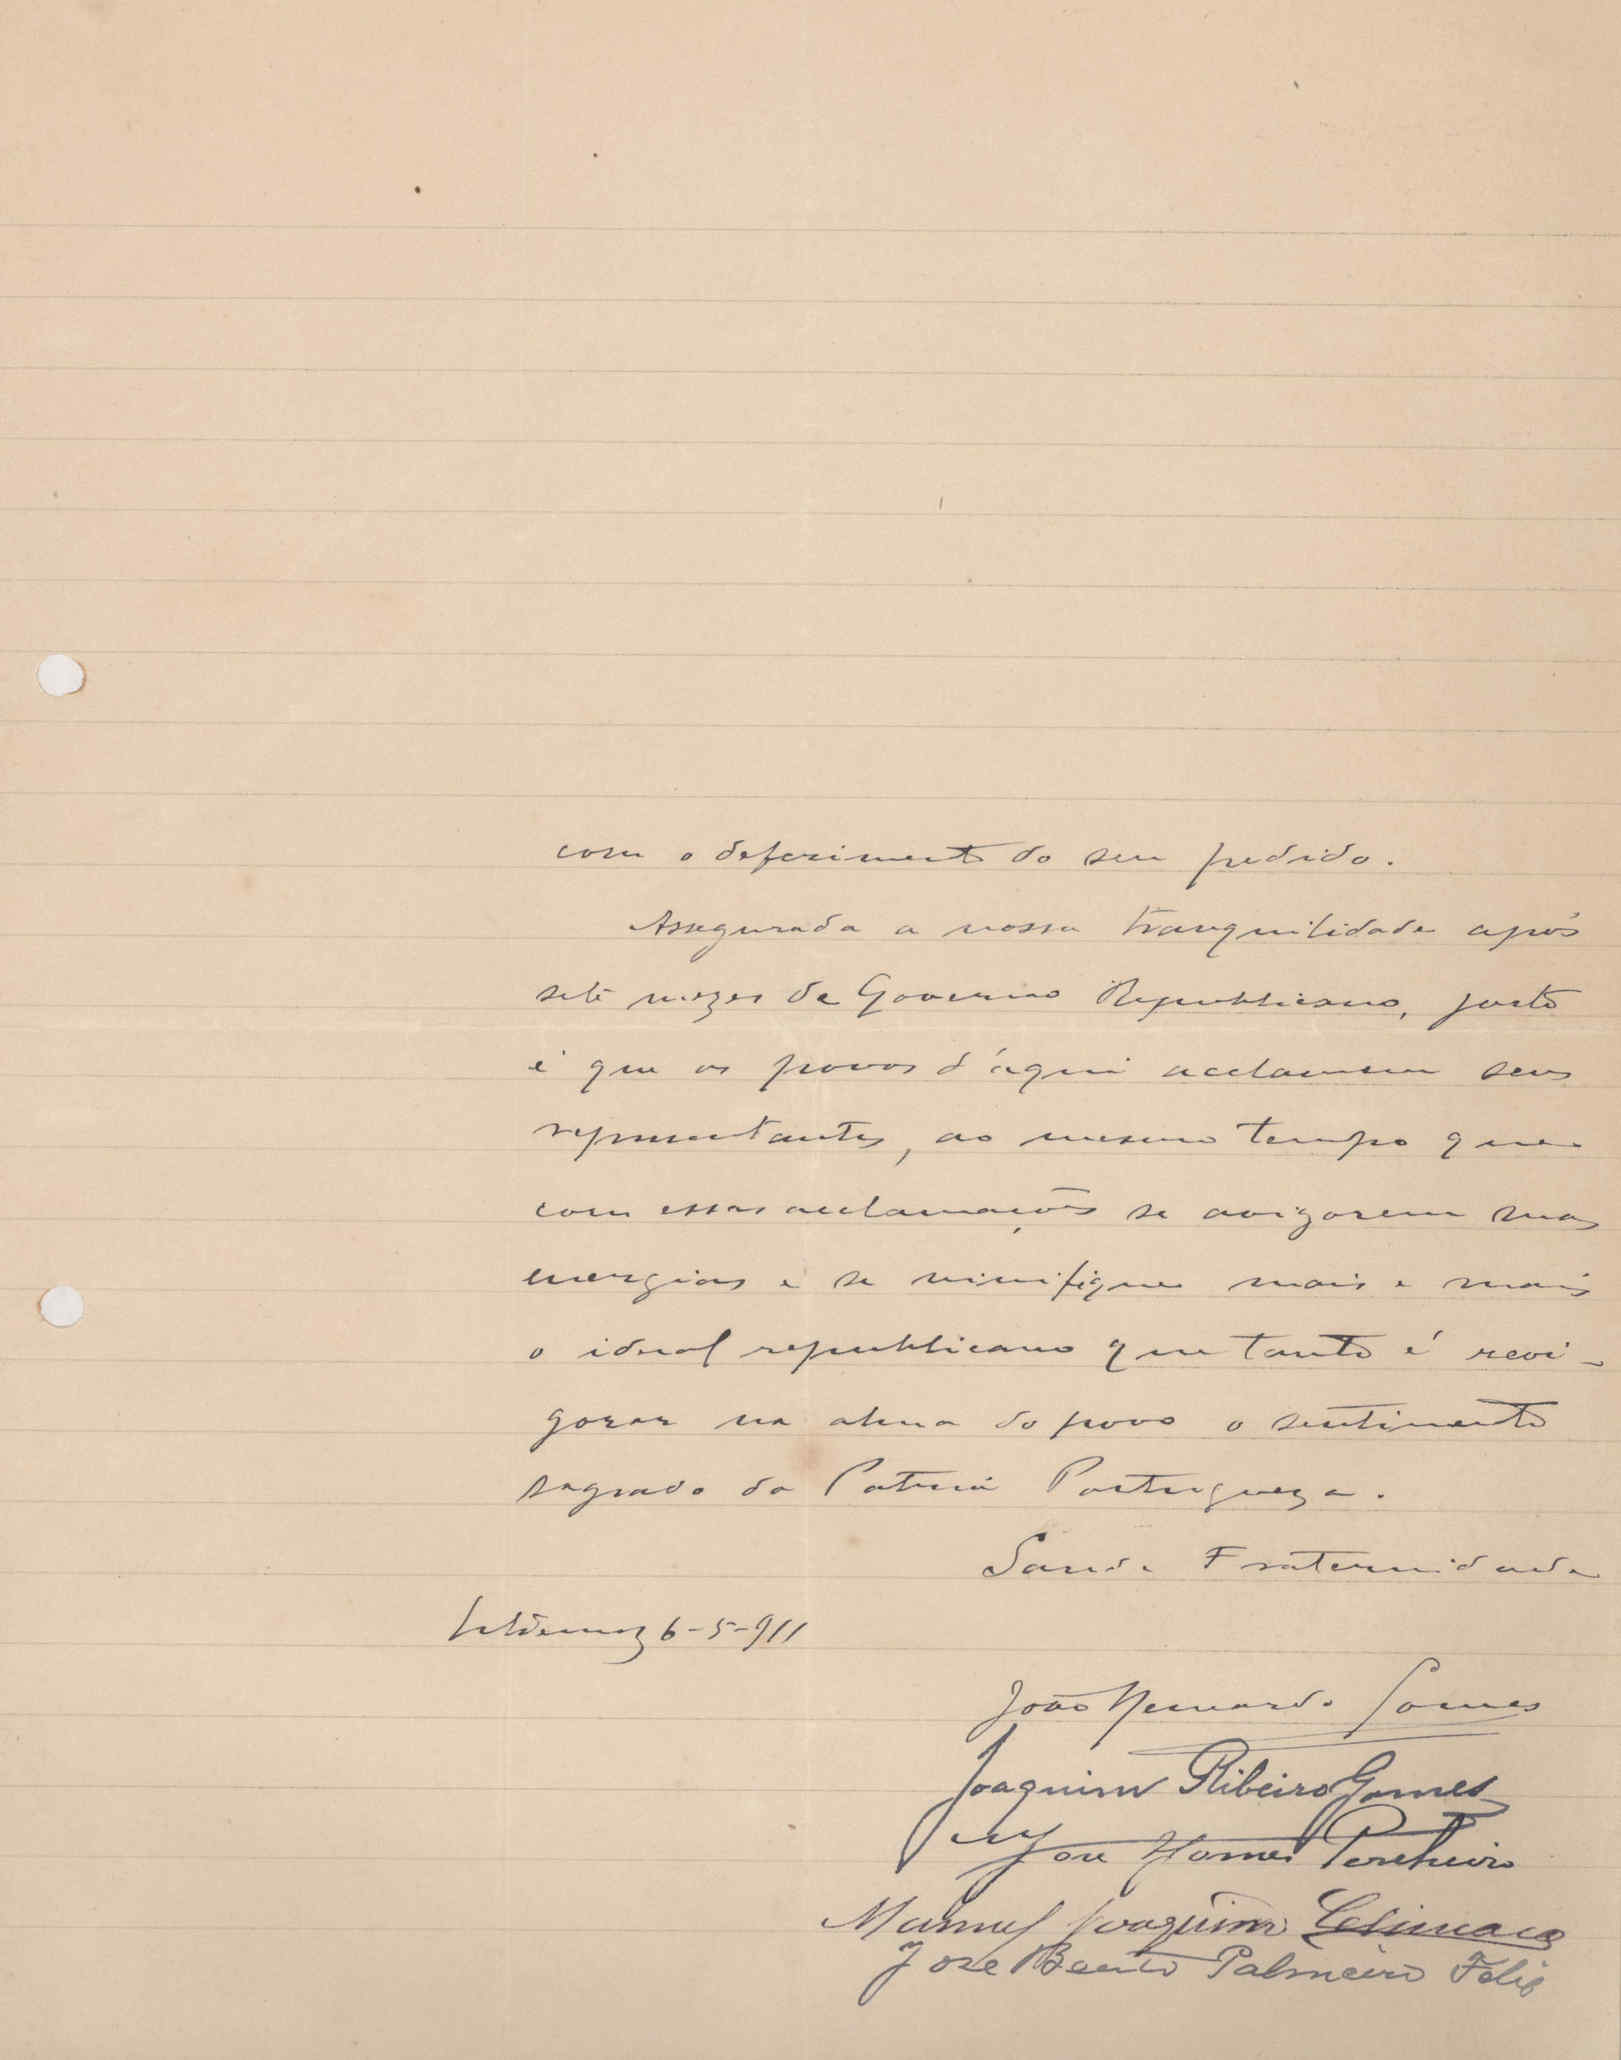 com o deferimento do seu pedido.
Assegurada a nossa tranquilidade após
sete mezes de Governo Republicano, justo
é que os povos d'áqui acclamem seus
representantes, ao mesmo tempo que
com essas acclamações se avigorem suas
energias e se vivifique mais e mais
o ideal republicano que tanto é revi-
gorar na alma do povo o sentimento
sagrado da Patria Portugueza.
Saude Fraternidade
Estremoz 6-5-911
João Gomes
Joaquim Ribeiro Gomes
José Gomes
Manuel Joaquim Climaco
Jose Bento Palmeiro Felix